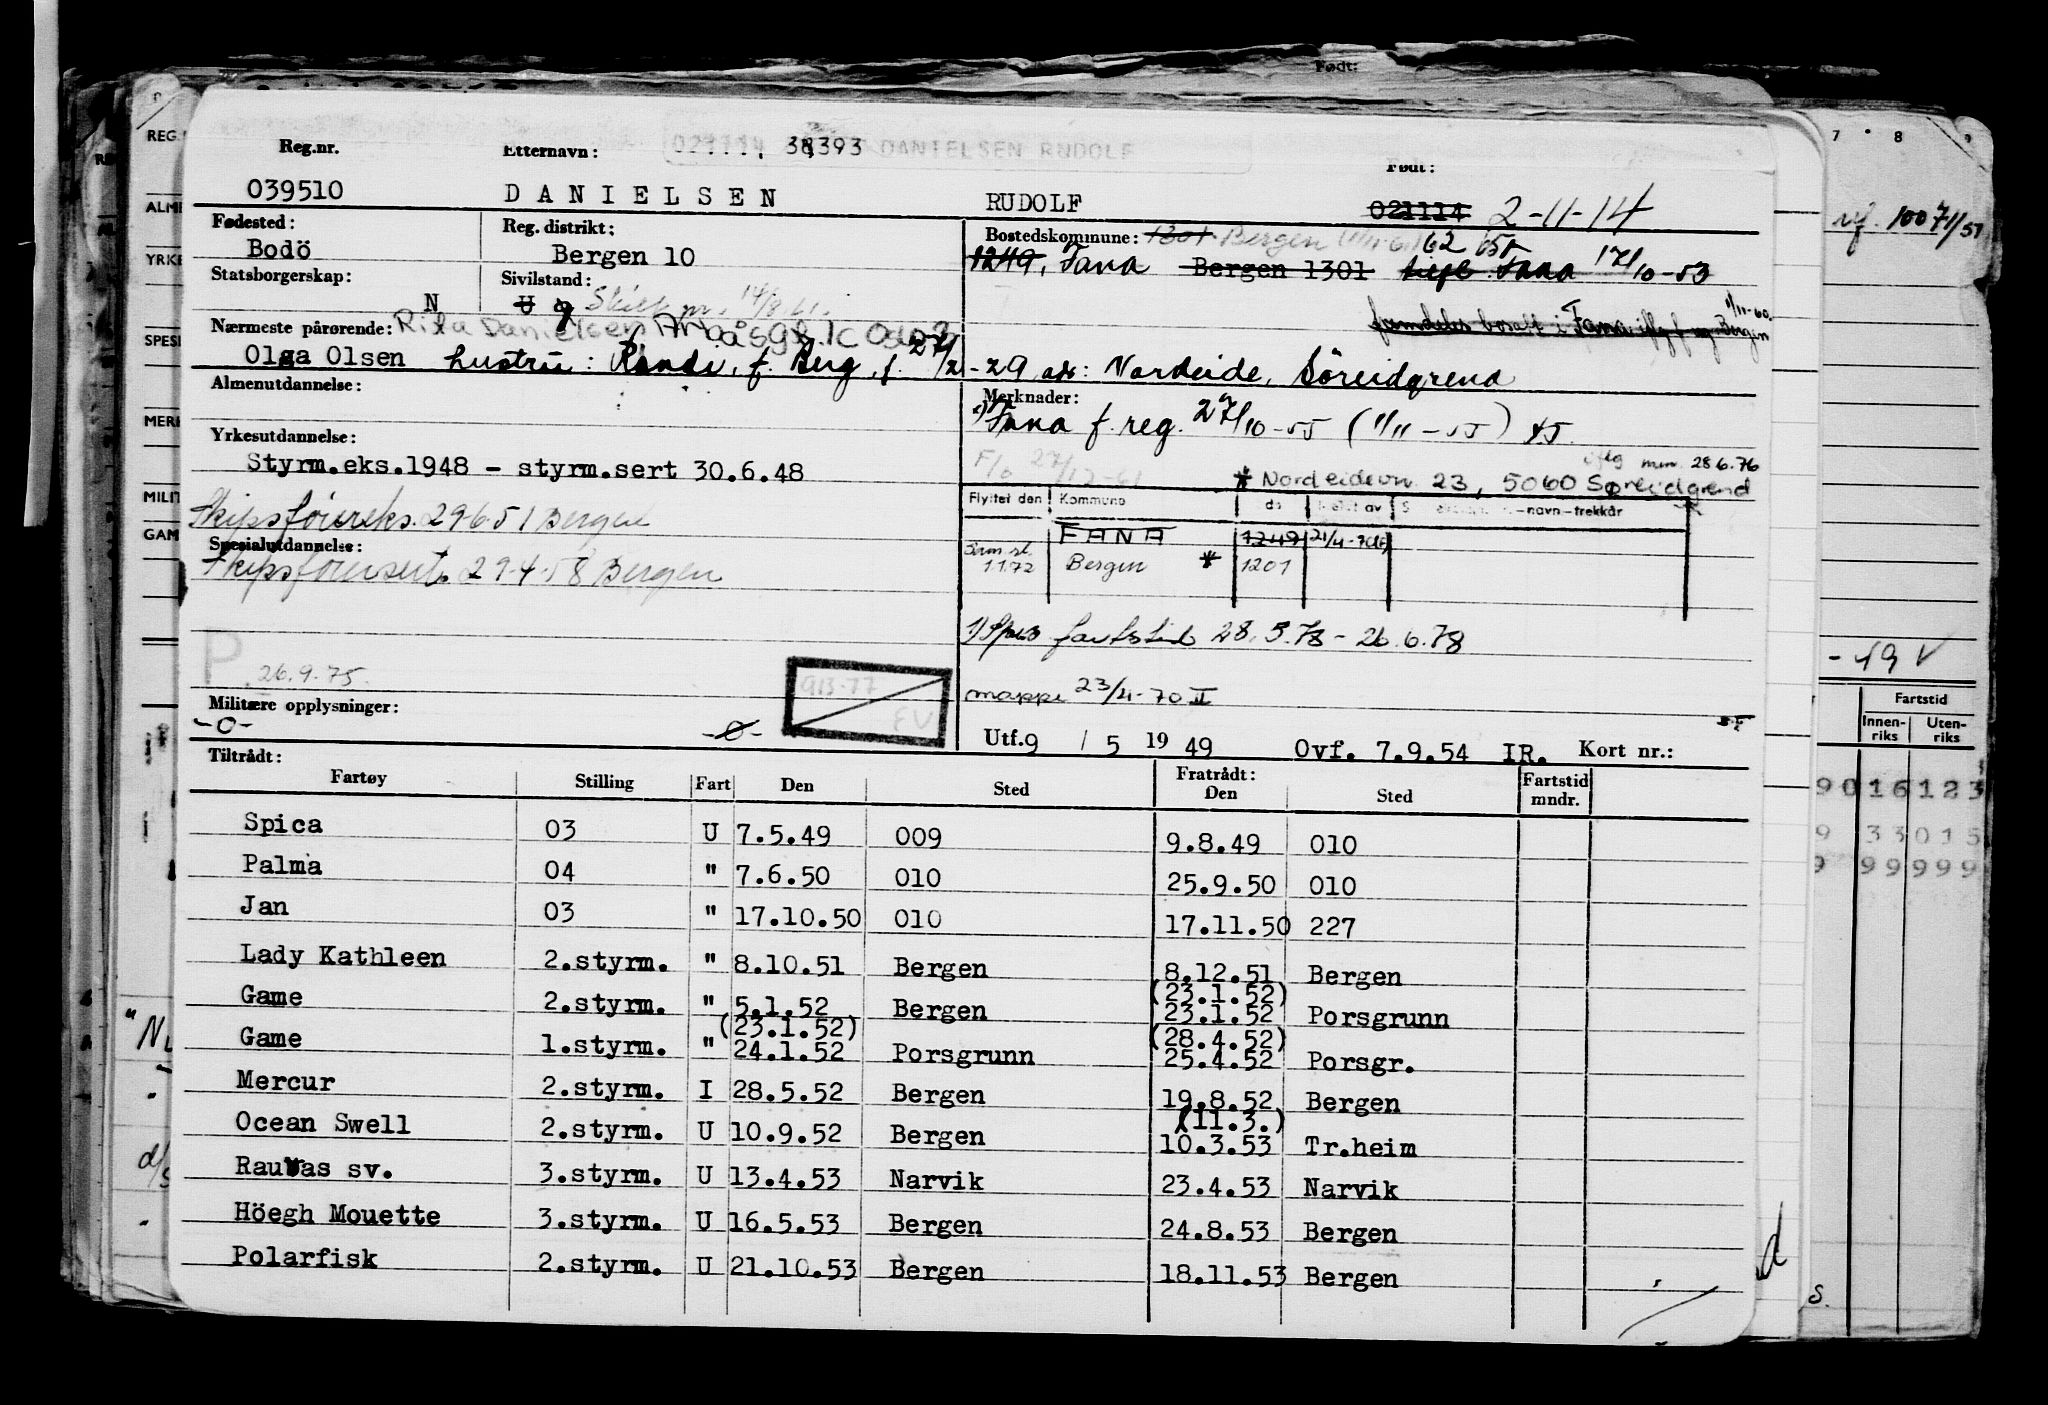 Født:
021114 DANIELSEN RUDOLF
38393
Reg.nr. Etternavn: Født:
039510 DANIELSEN RUDOLF 021114 2-11-14
Fødested: Reg. distrikt: Bostedskommune: 1301 Bergen
Bodö Bergen 10 1249, Fana Bergen 1301 Fana 17/10-53
Statsborgerskap: Sivilstand:
N U g
framdeles bosatt i Fana
Nærmeste pårørende: Rita Danielsen
Olga Olsen hustru: f. Berg, f. 27/2-29 adr: Nordeide, Söreidgrend
Almenutdannelse: Merknader:
Fana f. reg. 27/10-55 (1/11-55)
Yrkesutdannelse:
Styrm.eks.1948 - styrm.sert 30.6.48
28 6.76
* Nordeidevn. 23, 5060 Søreidgrend
Skipsføréreks. 29651 Bergen
Flyttet den Kommune navn-trekkår
FANA 1249
Spesialutdannelse:
Skipsførersert. 29.4.58 Bergen
1.1.72 Bergen * 1201
fartstid 28.5.78 - 26.6.78
P 26.9.75.
913-77
mappe 23/4-70 II
Militære opplysninger:
-0- -0-
Utf. 9 / 5 19 49 Ovf. 7.9.54 IR. Kort nr.:
Tiltrådt: Fratrådt:
Fartøy Stilling Fart Den Sted Den Sted Fartstid mndr.
Spica 03 U 7.5.49 009 9.8.49 010
Palma 04 " 7.6.50 010 25.9.50 010
Jan 03 " 17.10.50 010 17.11.50 227
Lady Kathleen 2.styrm. " 8.10.51 Bergen 8.12.51 Bergen
(23.1.52)
Game 2.styrm. " 5.1.52 Bergen 23.1.52 Porsgrunn
(23.1.52) (28.4.52)
Game 1.styrm. " 24.1.52 Porsgrunn 25.4.52 Porsgr.
Mercur 2.styrm. I 28.5.52 Bergen 19.8.52 Bergen
(11.3.)
Ocean Swell 2.styrm. U 10.9.52 Bergen 10.3.53 Tr.heim
Rauvas sv. 3.styrm. U 13.4.53 Narvik 23.4.53 Narvik
Höegh Mouette 3.styrm. U 16.5.53 Bergen 24.8.53 Bergen
Polarfisk 2.styrm. U 21.10.53 Bergen 18.11.53 Bergen
REG
ALME
YRKE
SPESI
MERK
MILIT
GAM
7 8
10071/51
-19 V
Fartstid
Innen-riks Uten-riks
9016123
9 33015
9 99999